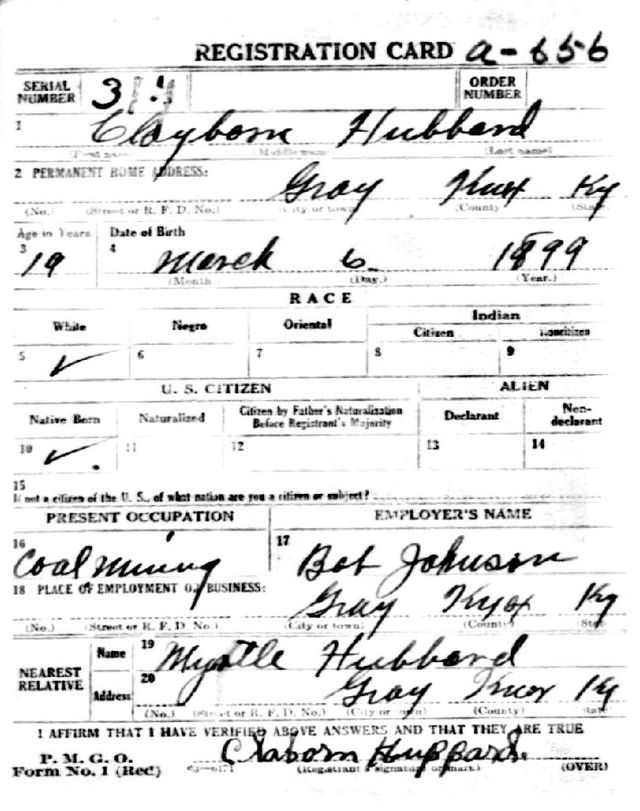 REGISTRATION CARD a-656
SERIAL NUMBER 314 ORDER NUMBER
1 Clayborn Hubbard
(First name) (Middle name) (Last name)
2 PERMANENT HOME ADDRESS:
Gray Knox Ky
(No.) (Street or R. F. D. No.) (City or town) (County) (State)
Age in Years Date of Birth
3 19 4 March 6 1899
(Month (Day.) (Year.)
RACE
White Negro Oriental Indian
Citizen Noncitizen
5 ✓ 6 7 8 9
U. S. CITIZEN ALIEN
Native Born Naturalized Citizen by Father's Naturalization Before Registrant's Majority Declarant Non-declarant
10 ✓ 11 12 13 14
15
If not a citizen of the U. S., of what nation are you a citizen or subject?
PRESENT OCCUPATION EMPLOYER'S NAME
16 Coal mining 17 Bob Johnson
18 PLACE OF EMPLOYMENT OR BUSINESS:
Gray Knox Ky
(No.) (Street or R. F. D. No.) (City or town) (County) State
NEAREST RELATIVE Name 19 Myrtle Hubbard
Address 20 Gray Knox Ky
(No.) (Street or R. F. D. No.) (City or town) (County) (State)
I AFFIRM THAT I HAVE VERIFIED ABOVE ANSWERS AND THAT THEY ARE TRUE
P. M. G. O.
Form No. 1 (Red) Claborn Huppard
(Registrant's signature or mark) (OVER)